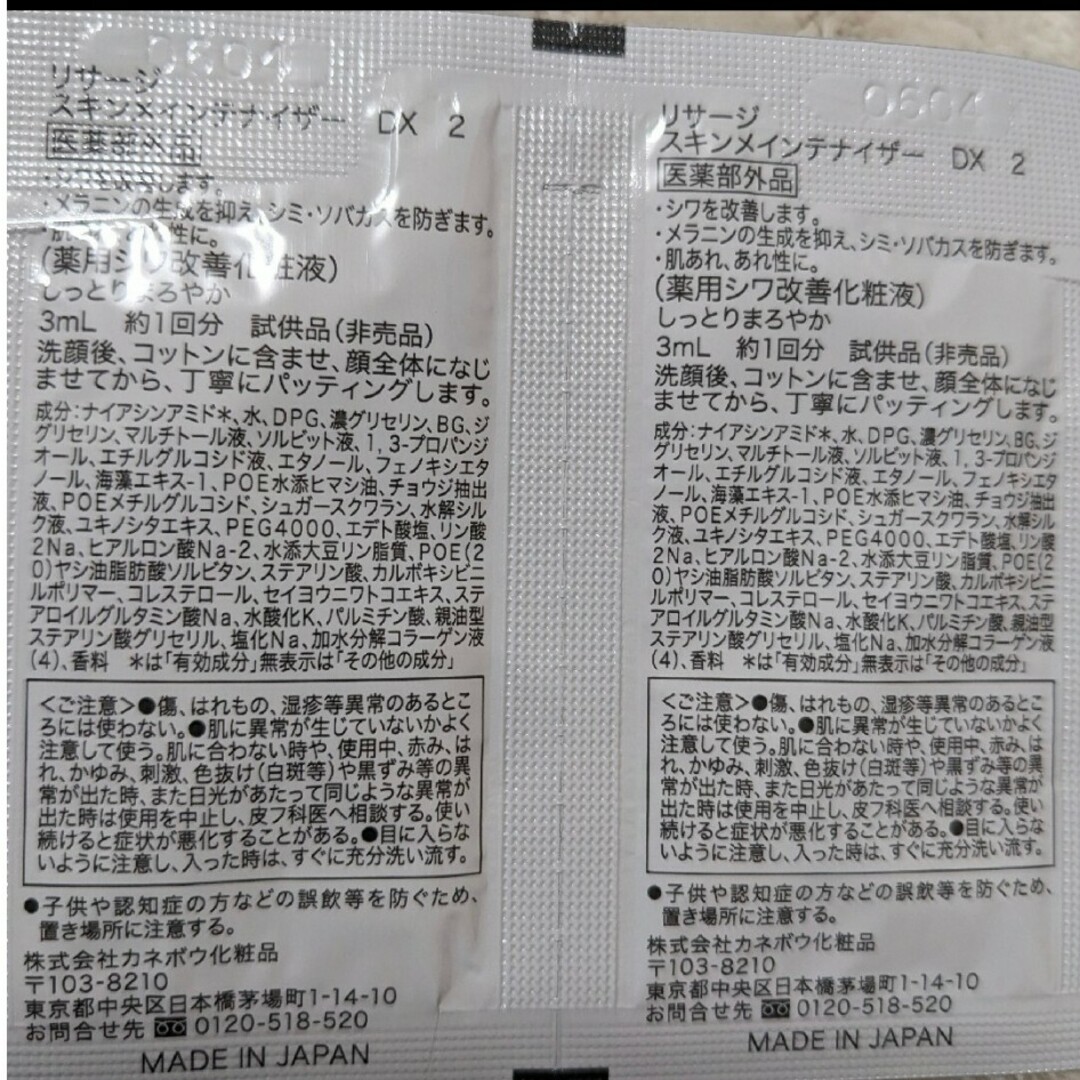 0604
リサージ
スキンメインテナイザー DX 2
医薬部外品
・シワを改善します。
・メラニンの生成を抑え、シミ・ソバカスを防ぎます。
・肌あれ、あれ性に。
(薬用シワ改善化粧液)
しっとりまろやか
3mL 約1回分 試供品(非売品)
洗顔後、コットンに含ませ、顔全体になじ
ませてから、丁寧にパッティングします。
成分:ナイアシンアミド*、水、DPG、濃グリセリン、BG、ジ
グリセリン、マルチトール液、ソルビット液、1,3-プロパンジ
オール、エチルグルコシド液、エタノール、フェノキシエタ
ノール、海藻エキス-1、POE水添ヒマシ油、チョウジ抽出
液、POEメチルグルコシド、シュガースクワラン、水解シル
ク液、ユキノシタエキス、PEG4000、エデト酸塩、リン酸
2Na、ヒアルロン酸Na-2、水添大豆リン脂質、POE(2
0)ヤシ油脂肪酸ソルビタン、ステアリン酸、カルボキシビニ
ルポリマー、コレステロール、セイヨウニワトコエキス、ステ
アロイルグルタミン酸Na、水酸化K、パルミチン酸、親油型
ステアリン酸グリセリル、塩化Na、加水分解コラーゲン液
(4)、香料 *は「有効成分」無表示は「その他の成分」
<ご注意>●傷、はれもの、湿疹等異常のあるとこ
ろには使わない。●肌に異常が生じていないかよく
注意して使う。肌に合わない時や、使用中、赤み、は
れ、かゆみ、刺激、色抜け(白斑等)や黒ずみ等の異
常が出た時、また日光があたって同じような異常が
出た時は使用を中止し、皮フ科医へ相談する。使い
続けると症状が悪化することがある。●目に入らな
いように注意し、入った時は、すぐに充分洗い流す。
●子供や認知症の方などの誤飲等を防ぐため、
置き場所に注意する。
株式会社カネボウ化粧品
〒103-8210
東京都中央区日本橋茅場町1-14-10
お問合せ先 0120-518-520
MADE IN JAPAN
0604
リサージ
スキンメインテナイザー DX 2
医薬部外品
・シワを改善します。
・メラニンの生成を抑え、シミ・ソバカスを防ぎます。
・肌あれ、あれ性に。
(薬用シワ改善化粧液)
しっとりまろやか
3mL 約1回分 試供品(非売品)
洗顔後、コットンに含ませ、顔全体になじ
ませてから、丁寧にパッティングします。
成分:ナイアシンアミド*、水、DPG、濃グリセリン、BG、ジ
グリセリン、マルチトール液、ソルビット液、1,3-プロパンジ
オール、エチルグルコシド液、エタノール、フェノキシエタ
ノール、海藻エキス-1、POE水添ヒマシ油、チョウジ抽出
液、POEメチルグルコシド、シュガースクワラン、水解シル
ク液、ユキノシタエキス、PEG4000、エデト酸塩、リン酸
2Na、ヒアルロン酸Na-2、水添大豆リン脂質、POE(2
0)ヤシ油脂肪酸ソルビタン、ステアリン酸、カルボキシビニ
ルポリマー、コレステロール、セイヨウニワトコエキス、ステ
アロイルグルタミン酸Na、水酸化K、パルミチン酸、親油型
ステアリン酸グリセリル、塩化Na、加水分解コラーゲン液
(4)、香料 *は「有効成分」無表示は「その他の成分」
<ご注意>●傷、はれもの、湿疹等異常のあるとこ
ろには使わない。●肌に異常が生じていないかよく
注意して使う。肌に合わない時や、使用中、赤み、は
れ、かゆみ、刺激、色抜け(白斑等)や黒ずみ等の異
常が出た時、また日光があたって同じような異常が
出た時は使用を中止し、皮フ科医へ相談する。使い
続けると症状が悪化することがある。●目に入らな
いように注意し、入った時は、すぐに充分洗い流す。
●子供や認知症の方などの誤飲等を防ぐため、
置き場所に注意する。
株式会社カネボウ化粧品
〒103-8210
東京都中央区日本橋茅場町1-14-10
お問合せ先 0120-518-520
MADE IN JAPAN